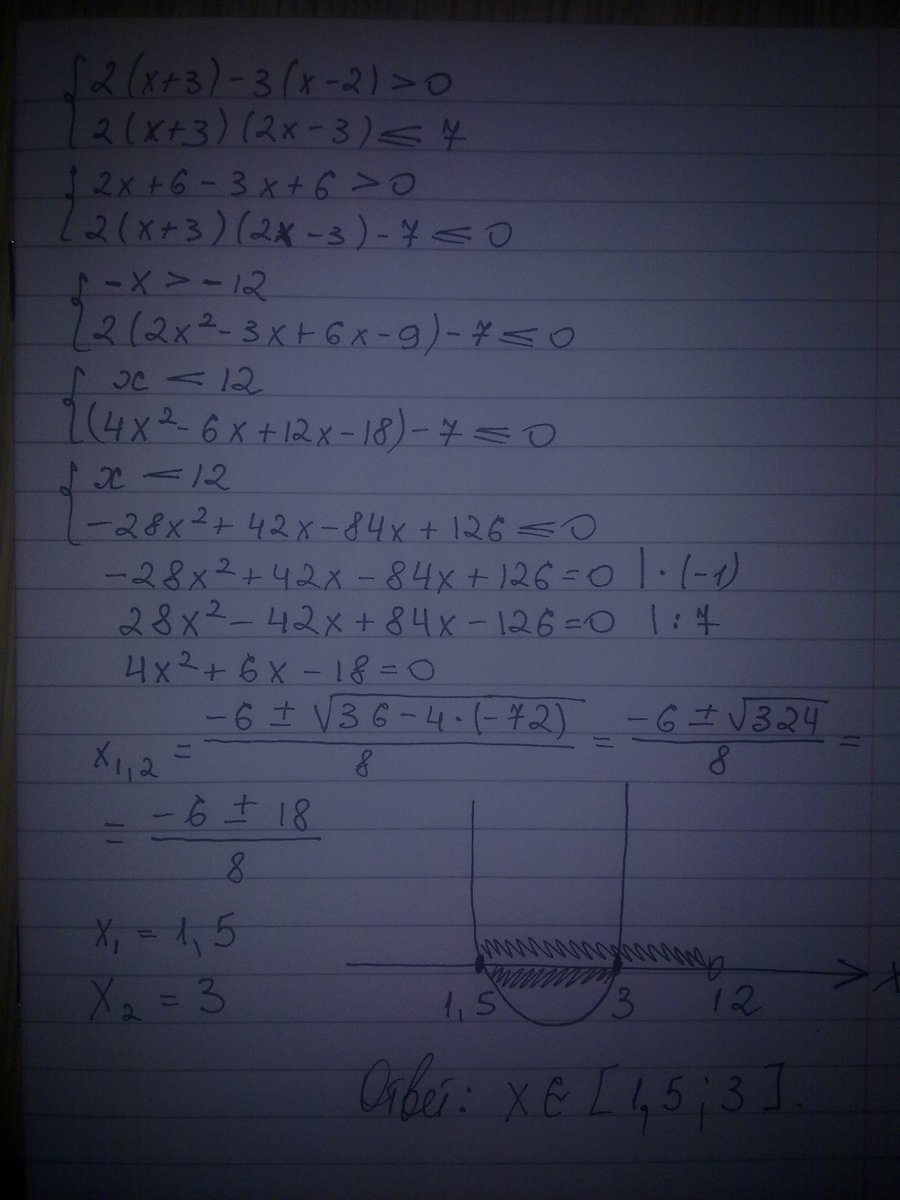 {2(x+3)-3(x-2)>0
{2(x+3)(2x-3)≤7
{2x+6-3x+6>0
{2(x+3)(2x-3)-7≤0
{-x>-12
{2(2x²-3x+6x-9)-7≤0
{x<12
{(4x²-6x+12x-18)-7≤0
{x<12
{-28x²+42x-84x+126≤0
-28x²+42x-84x+126=0 |·(-1)
28x²-42x+84x-126=0 |:7
4x²+6x-18=0
x₁,₂ = (-6±√(36-4·(-72)))/8 = (-6±√324)/8 =
= (-6±18)/8
x₁=1,5
x₂=3
1,5 3 12 x
Ответ: x∈[1,5;3].